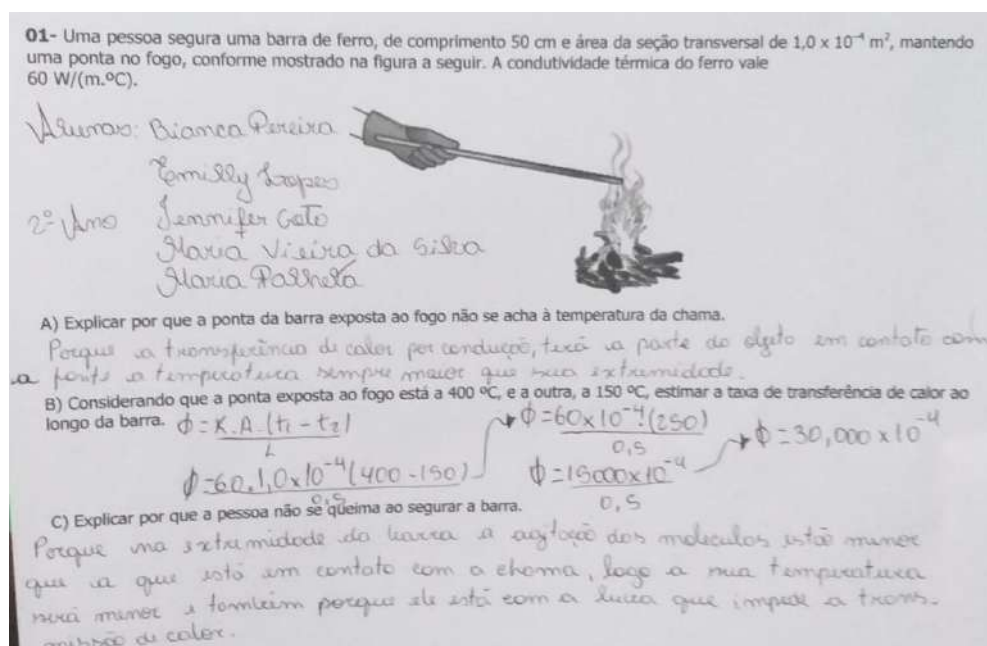 01- Uma pessoa segura uma barra de ferro, de comprimento 50 cm e área da seção transversal de 1,0 x 10⁻⁴ m², mantendo
uma ponta no fogo, conforme mostrado na figura a seguir. A condutividade térmica do ferro vale
60 W/(m.ºC).
Alunas: Bianca Pereira
Emilly Lopes
2º Ano Jennifer Couto
Maria Vieira da Silva
Maria Palheta
A) Explicar por que a ponta da barra exposta ao fogo não se acha à temperatura da chama.
Porque a transferência de calor por condução, terá a parte do objeto em contato com
a fonte a temperatura sempre maior que sua extremidade.
B) Considerando que a ponta exposta ao fogo está a 400 ºC, e a outra, a 150 ºC, estimar a taxa de transferência de calor ao
longo da barra. ϕ = K.A.(t₁ - t₂) / L
ϕ = 60.1,0x10⁻⁴(400-150) / 0,5
ϕ = 60x10⁻⁴.(250) / 0,5
ϕ = 15000x10⁻⁴ / 0,5
ϕ = 30,000 x 10⁻⁴
C) Explicar por que a pessoa não se queima ao segurar a barra.
Porque na extremidade da barra a agitação das moleculas estão menor
que a que está em contato com a chama, logo a sua temperatura
será menor e também porque ele está com a luva que impede a trans-
missão de calor.